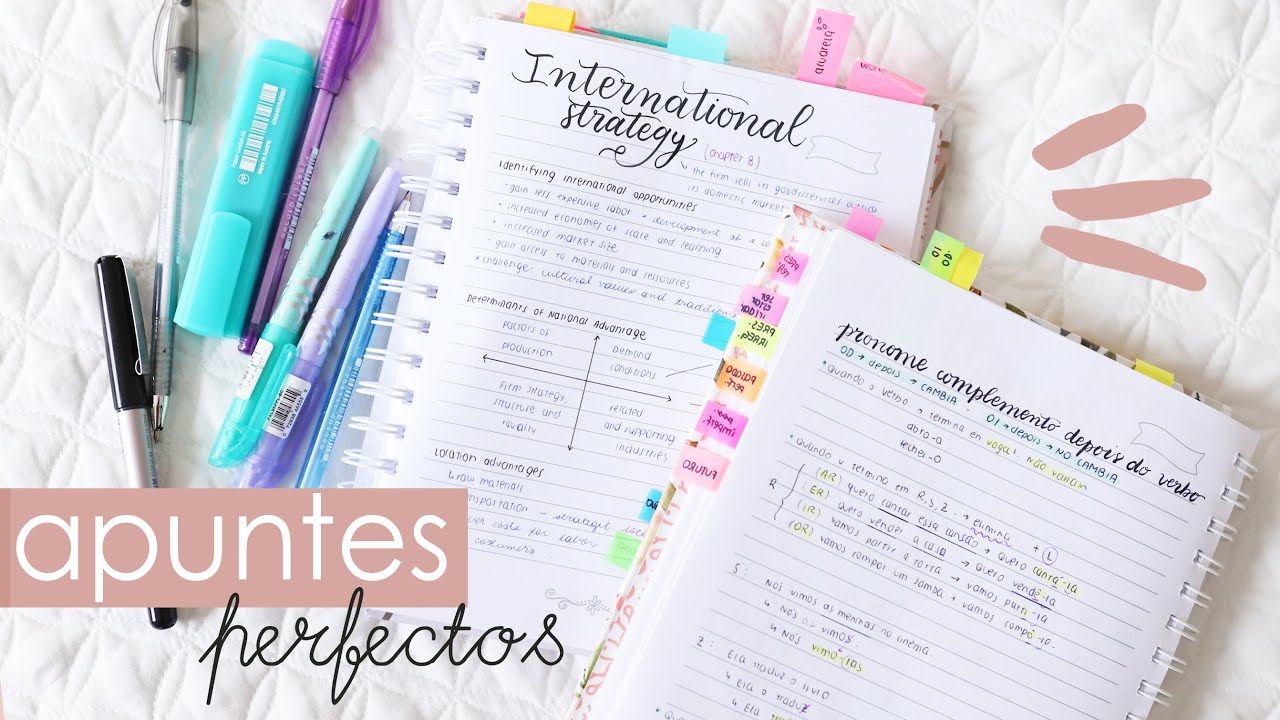 International
strategy
(chapter 8)
the firm sells its goods/services outside
its domestic market
Identifying international opportunities
• gain less expensive labor • development of a
• increased economies of scale and learning
• increased market size
• gain access to materials and resources
• challenge: cultural values and traditions
Determinants of National Advantage
Factors of
production
Demand
conditions
Firm strategy,
structure and
rivalry
related
and supporting
industries
Location advantages
raw materials
strategic
costs for labor
costumers
acuarela
work
FUTURO
pronome complemento depois do verbo
OD → depois → CAMBIA . OI → depois → NO CAMBIA
• Quando o verbo → termina en vogal: não varian
abro-a
fecho-o
• Quando v. termina em R, S, Z → elimina + (L)
R
(AR) quero cantar essa canção → quero cantá-la
(ER) quero vender a casa → quero vendê-la
(IR) vamos partir a torta → vamos parti-la
(OR) vamos compor um samba → vamos compô-lo
S: Nós vimos as meninas no cinema
↳ Nós as vimos
↳ Nós vimo-las
Z: Ela traduz o livro
↳ Ela o traduz
↳ Ela
apuntes
perfectos